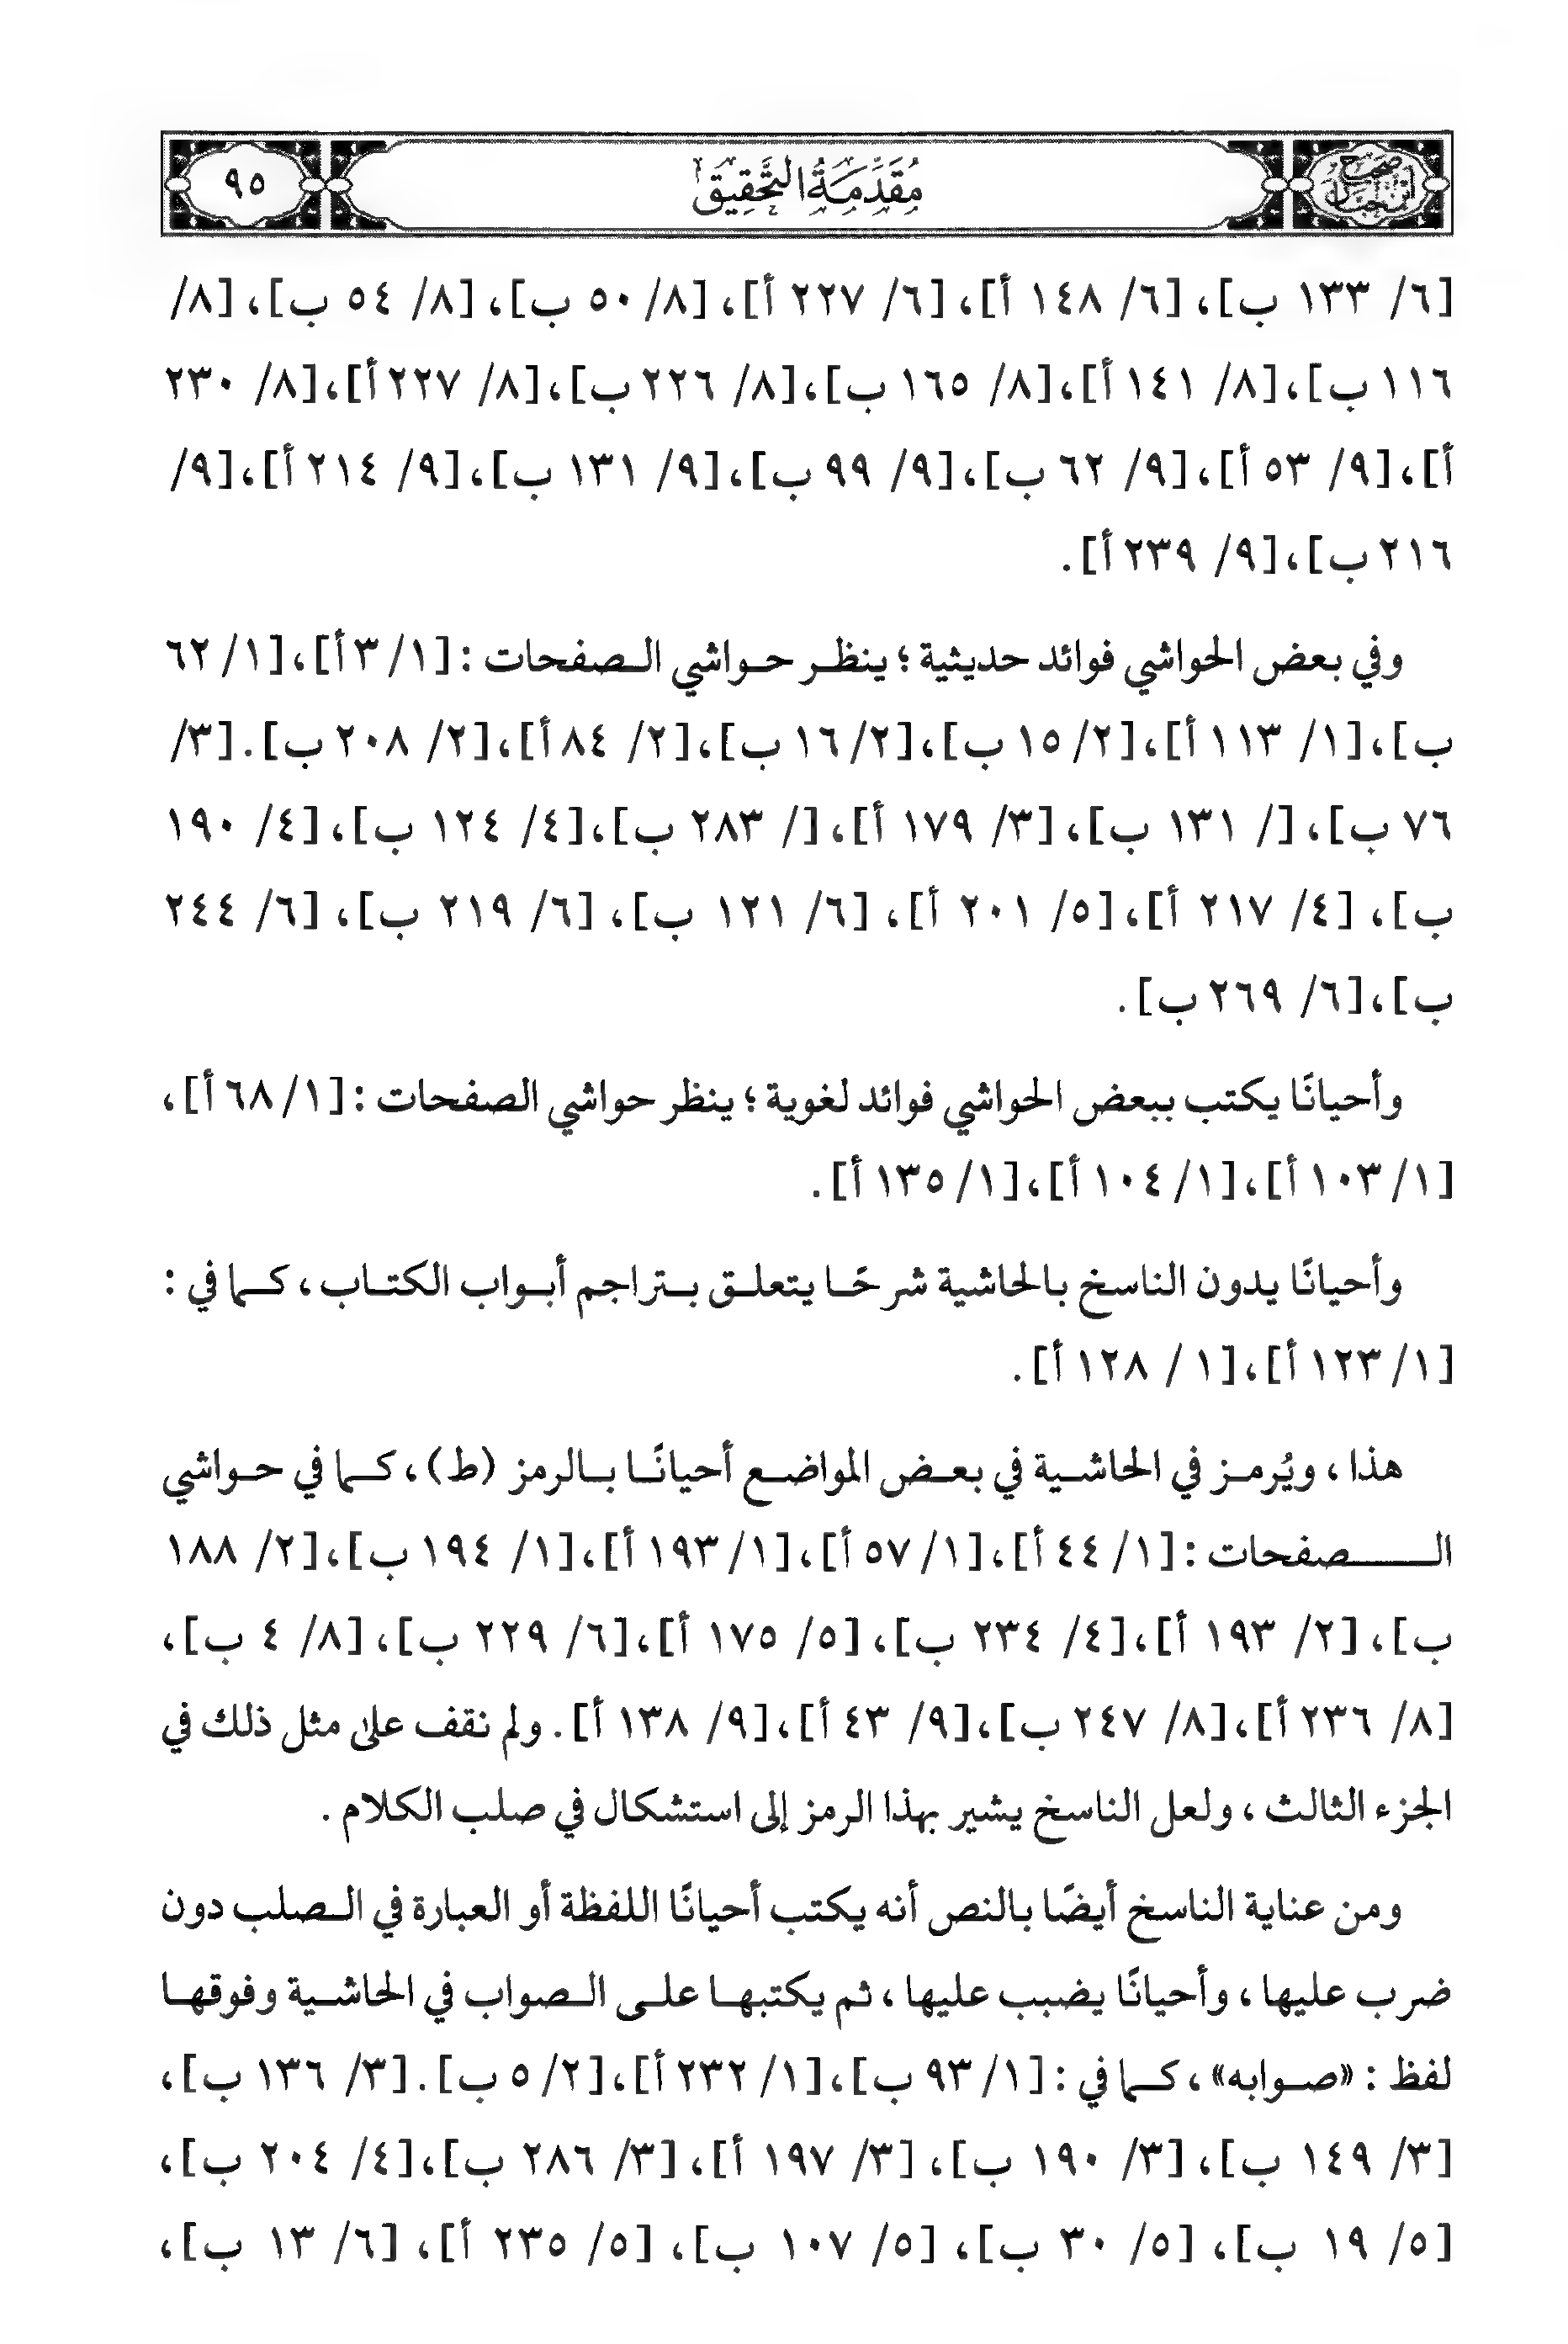 صحيح ابن حبان
مُقَدِّمَةُ التَّحْقِيق
٩٥
[٦/ ١٣٣ ب]، [٦/ ١٤٨ أ]، [٦/ ٢٢٧ أ]، [٨/ ٥٠ ب]، [٨/ ٥٤ ب]، [٨/
١١٦ ب]، [٨/ ١٤١ أ]، [٨/ ١٦٥ ب]، [٨/ ٢٢٦ ب]، [٨/ ٢٢٧ أ]، [٨/ ٢٣٠
أ]، [٩/ ٥٣ أ]، [٩/ ٦٢ ب]، [٩/ ٩٩ ب]، [٩/ ١٣١ ب]، [٩/ ٢١٤ أ]، [٩/
٢١٦ ب]، [٩/ ٢٣٩ أ].
وفي بعض الحواشي فوائد حديثية؛ ينظر حواشي الصفحات: [١/ ٣ أ]، [١/ ٦٢
ب]، [١/ ١١٣ أ]، [٢/ ١٥ ب]، [٢/ ١٦ ب]، [٢/ ٨٤ أ]، [٢/ ٢٠٨ ب]. [٣/
٧٦ ب]، [/ ١٣١ ب]، [٣/ ١٧٩ أ]، [/ ٢٨٣ ب]، [٤/ ١٢٤ ب]، [٤/ ١٩٠
ب]، [٤/ ٢١٧ أ]، [٥/ ٢٠١ أ]، [٦/ ١٢١ ب]، [٦/ ٢١٩ ب]، [٦/ ٢٤٤
ب]، [٦/ ٢٦٩ ب].
وأحيانًا يكتب ببعض الحواشي فوائد لغوية؛ ينظر حواشي الصفحات: [١/ ٦٨ أ]،
[١/ ١٠٣ أ]، [١/ ١٠٤ أ]، [١/ ١٣٥ أ].
وأحيانًا يدون الناسخ بالحاشية شرحًا يتعلق بتراجم أبواب الكتاب، كما في:
[١/ ١٢٣ أ]، [١ / ١٢٨ أ].
هذا، ويُرمز في الحاشية في بعض المواضع أحيانًا بالرمز (ط)، كما في حواشي
الصفحات: [١/ ٤٤ أ]، [١/ ٥٧ أ]، [١/ ١٩٣ أ]، [١/ ١٩٤ ب]، [٢/ ١٨٨
ب]، [٢/ ١٩٣ أ]، [٤/ ٢٣٤ ب]، [٥/ ١٧٥ أ]، [٦/ ٢٢٩ ب]، [٨/ ٤ ب]،
[٨/ ٢٣٦ أ]، [٨/ ٢٤٧ ب]، [٩/ ٤٣ أ]، [٩/ ١٣٨ أ]. ولم نقف على مثل ذلك في
الجزء الثالث، ولعل الناسخ يشير بهذا الرمز إلى استشكال في صلب الكلام.
ومن عناية الناسخ أيضًا بالنص أنه يكتب أحيانًا اللفظة أو العبارة في الصلب دون
ضرب عليها، وأحيانًا يضبب عليها، ثم يكتبها على الصواب في الحاشية وفوقها
لفظ: «صوابه»، كما في: [١/ ٩٣ ب]، [١/ ٢٣٢ أ]، [٢/ ٥ ب]. [٣/ ١٣٦ ب]،
[٣/ ١٤٩ ب]، [٣/ ١٩٠ ب]، [٣/ ١٩٧ أ]، [٣/ ٢٨٦ ب]، [٤/ ٢٠٤ ب]،
[٥/ ١٩ ب]، [٥/ ٣٠ ب]، [٥/ ١٠٧ ب]، [٥/ ٢٣٥ أ]، [٦/ ١٣ ب]،